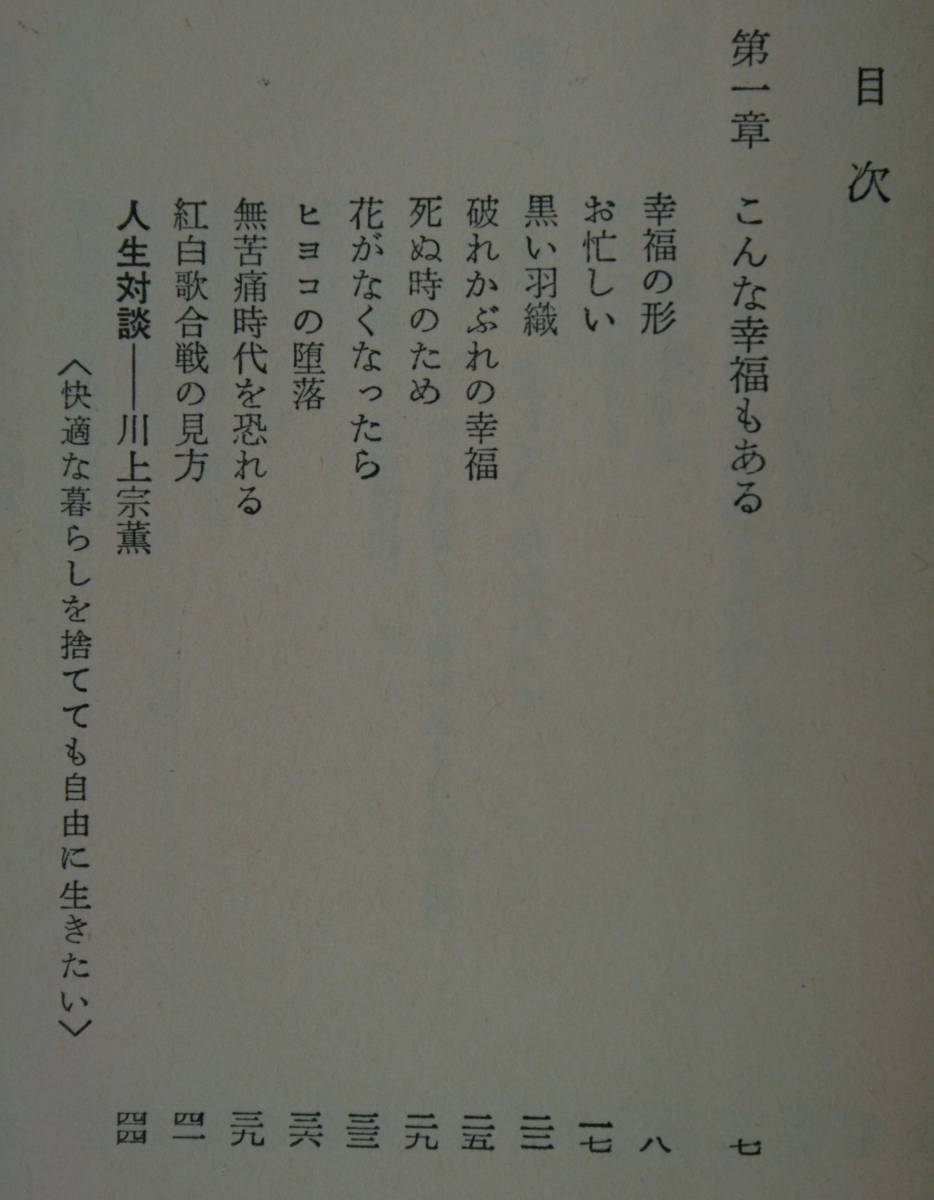 目次
第一章 こんな幸福もある 七
幸福の形 八
お忙しい 一七
黒い羽織 二二
破れかぶれの幸福 二五
死ぬ時のため 二九
花がなくなったら 三三
ヒヨコの堕落 三六
無苦痛時代を恐れる 三九
紅白歌合戦の見方 四一
人生対談――川上宗薫 四四
〈快適な暮らしを捨てても自由に生きたい〉